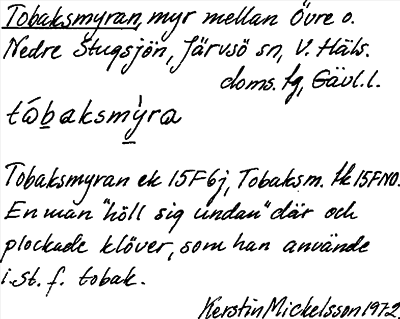 Tobaksmyran, myr mellan Övre o.
Nedre Stugsjön, Järvsö sn, V. Häls.
doms. fg, Gävl.l.
tóbaksmýra
Tobaksmyran ek 15F6j, Tobaksm. tk 15FNO.
En man "höll sig undan" där och
plockade klöver, som han använde
i.st. f. tobak.
Kerstin Mickelsson 1972.